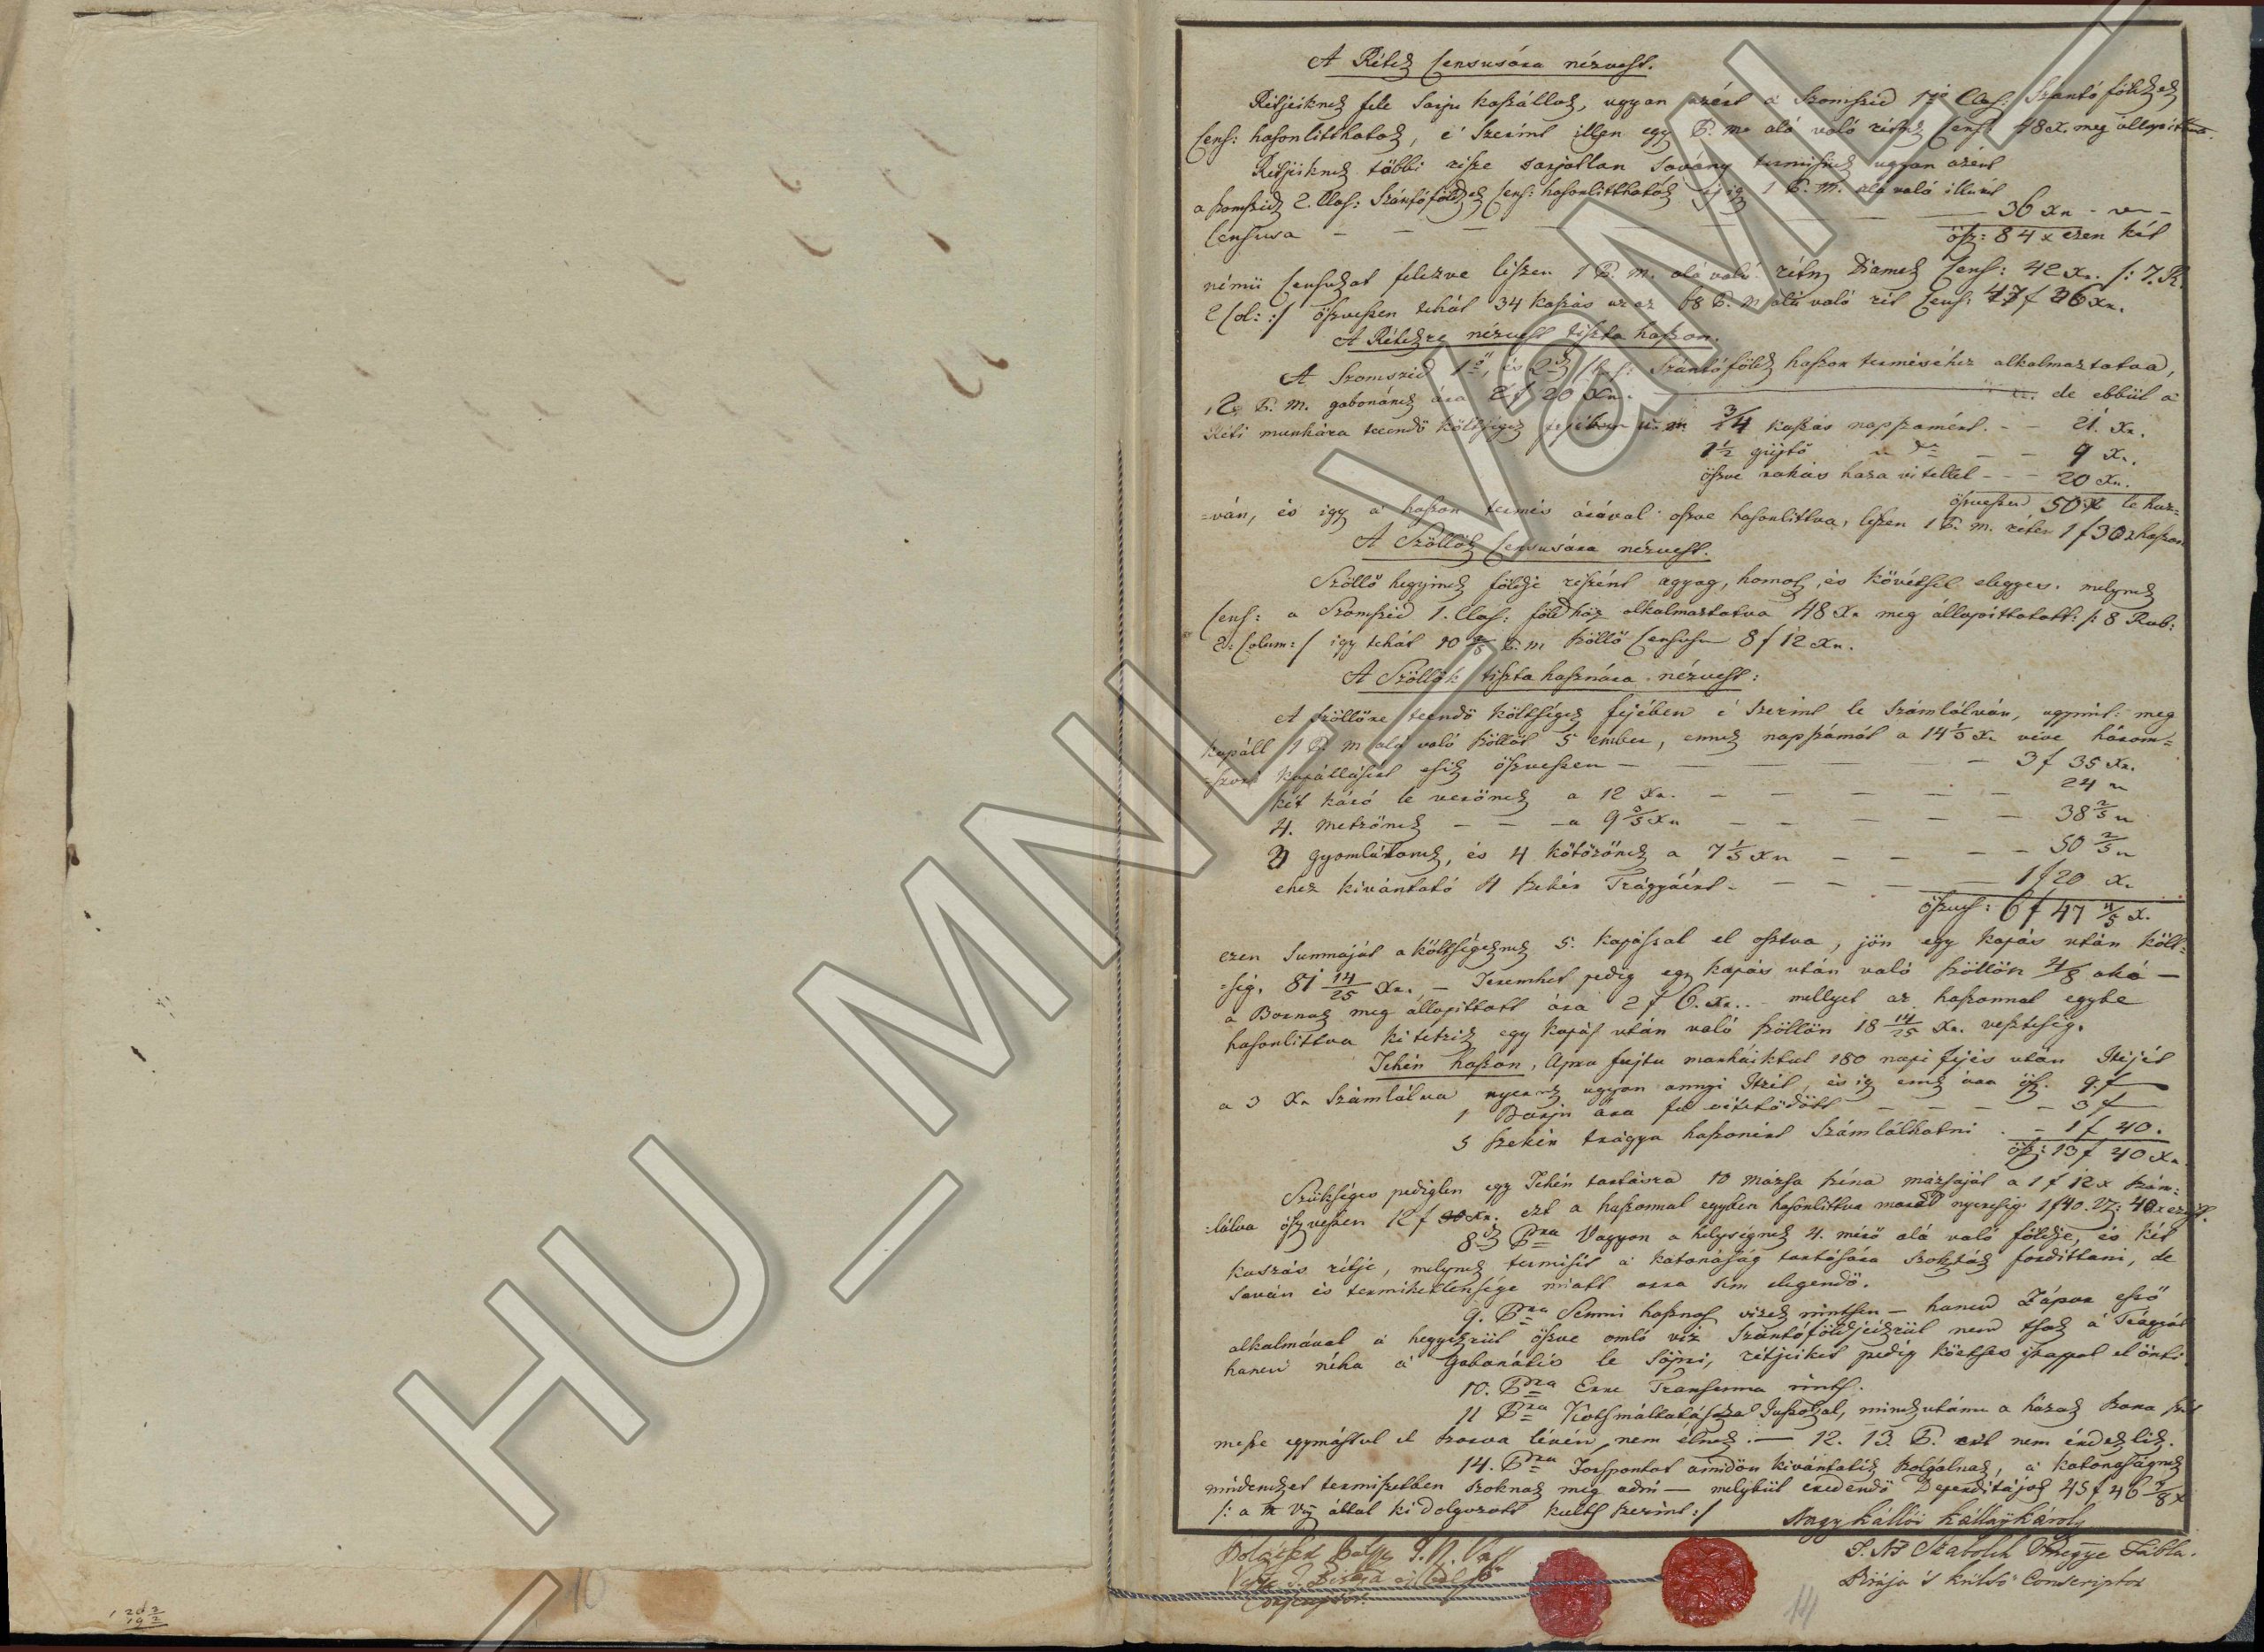 A Rétek Censusára nézvest.
Rétjeiknek fele Sarju kaszállók, ugyan azért a Szomszéd 1ső Clas: Szántó földeknek
Cens: hasonlitthatók, é szerint illyen egy P. m. alá való rétnek Cens: 48 x. meg állapittva.
Rétjeiknek többi része sarjutlan Sovány termésüek ugyan azért
a szomszéd 2. Clas: Szántóföldek Cens: hasonlitthatók, igy 1 P. M. alá való illyen
Censusa — — — — 36 xr
ösz: 84 x ezen két
némü Censusat felezve lészen 1 P. m. alá való rétnek Cens: 42 xr. /: 7. R.
2 Col: :/ öszvesen tehát 34 kaszás az az 68 P. m. alá való rét Cens: 47 f 36 xr.
A Rétekre nézvest tiszta haszon.
A Szomszéd 1ső és 2ik Clas: Szántóföldek haszon terméséhez alkalmaztatva,
P. M. gabonának ára 2 f 20 xr. — de ebbül a
Réti munkára teendö költségek fejében u. m. 3/4 kaszás napszámért. — 21. xr.
1 1/2 gyüjtő — 9 xr.
öszve rakás haza vitellel — 20 xr.
öszvesen 50 x le huz=
=ván, és igy a haszon termés árával öszve hasonlittva, lészen 1 P. m. réten 1 f 30 x haszon
A Szöllők Censusára nézvest.
Szöllő hegyinek földje részént agyag, homok, és kövétsel elegyes. melynek
Cens: a Szomszéd 1. Clas: földhöz alkalmaztatva 48 xr meg állapittatott: /: 8 Rub:
2: Colum: :/ igy tehát 10 2/8 P. m szöllő Censusa 8 f 12 xr.
A Szöllők tiszta hasznára nézvest:
A szöllőre teendö költségek fejében é szerint le számlálván, ugymint: meg
kapáll 1 P. m alá való szöllöt 5 ember, ennek napszámát a 14 1/3 xr véve három=
=szori kapállásért esik öszvesen — — — 3 f 35 xr.
két káró le verönek a 12 xr. — — — 24 „
4. metzönek — — a 9 3/5 xr — — — 38 2/5 „
3 gyomlálónak, és 4 kötözőnek a 7 1/5 xr — — — 50 2/5 „
ehez kivántató 4 szekér Trágyáért — — — 1 f 20 xr
öszves: 6 f 47 4/5 x.
ezen Summáját a költségeknek 5. kapással el osztva, jön egy kapás után költ=
=ség. 81 14/25 xr. — Teremhet pedig egy kapás után való szöllön 4/8 akó —
a Bornak meg állapittott ára 2 f 6. xr. mellyet az haszonnal egybe
hasonlittva ki tetzik egy kapás után való szöllön 18 14/25 xr. veszteség.
Tehén haszon, Apra fajtu marháiktul 180 napi fejés után Itzéjét
a 3 xr Számlálva nyernek ugyan annyi Itzét, és igy ennek ára ösz. 9. f —
1 Borju ára fel vétetödött — — — 3 f
5 szekér trágya haszonért Számlálhatni — 1 f 40.
ösz: 13 f 40 xr.
Szükséges pediglen egy Tehén tartásra 10 mázsa széna mázsáját a 1 f 12 x szám=
=lálva öszvesen 12 f xr. ezt a haszonnal egyben hasonlittva marad nyereség 1 f 40.
8ik Pra Vagyon a helységnek 4. mérö alá való földje, és két
kaszás rétje, melynek termését a katonáság tartására szokták fordittani, de
Sován és terméketlensége miatt arra sem elegendö.
9. Pra Semmi hasznos vizek nintsen — hanem Zápor esső
alkalmával a hegyekrül öszve omló viz Szántóföldjeikrül nem tsak a Trágyát
hanem néha a Gabonátis le söpri, rétjeiket pedig köetses iszappal el önti.
10. Pra Erre Transenna nints.
11 Pra Kotsmáltatások Jussokal, minekutánna a házak szana szét
messe egymástul el szorva lévén, nem élnek. — 12. 13. P. ezt nem érdeklik.
14. Pra Forspontot amidön kivántatik szolgálnak, a katonaságnak
mindeneket termiszetben szoknak meg adni — melybül eredendö Deperditájok 45 f 46 3/8 x
/: a N Vgye által ki dolgozott kults szerint :/
Nagy Kállói Kállay Károly
T. N. Szabolch Vármegye Tábla.
Birája 's külső Conscriptor
10
11